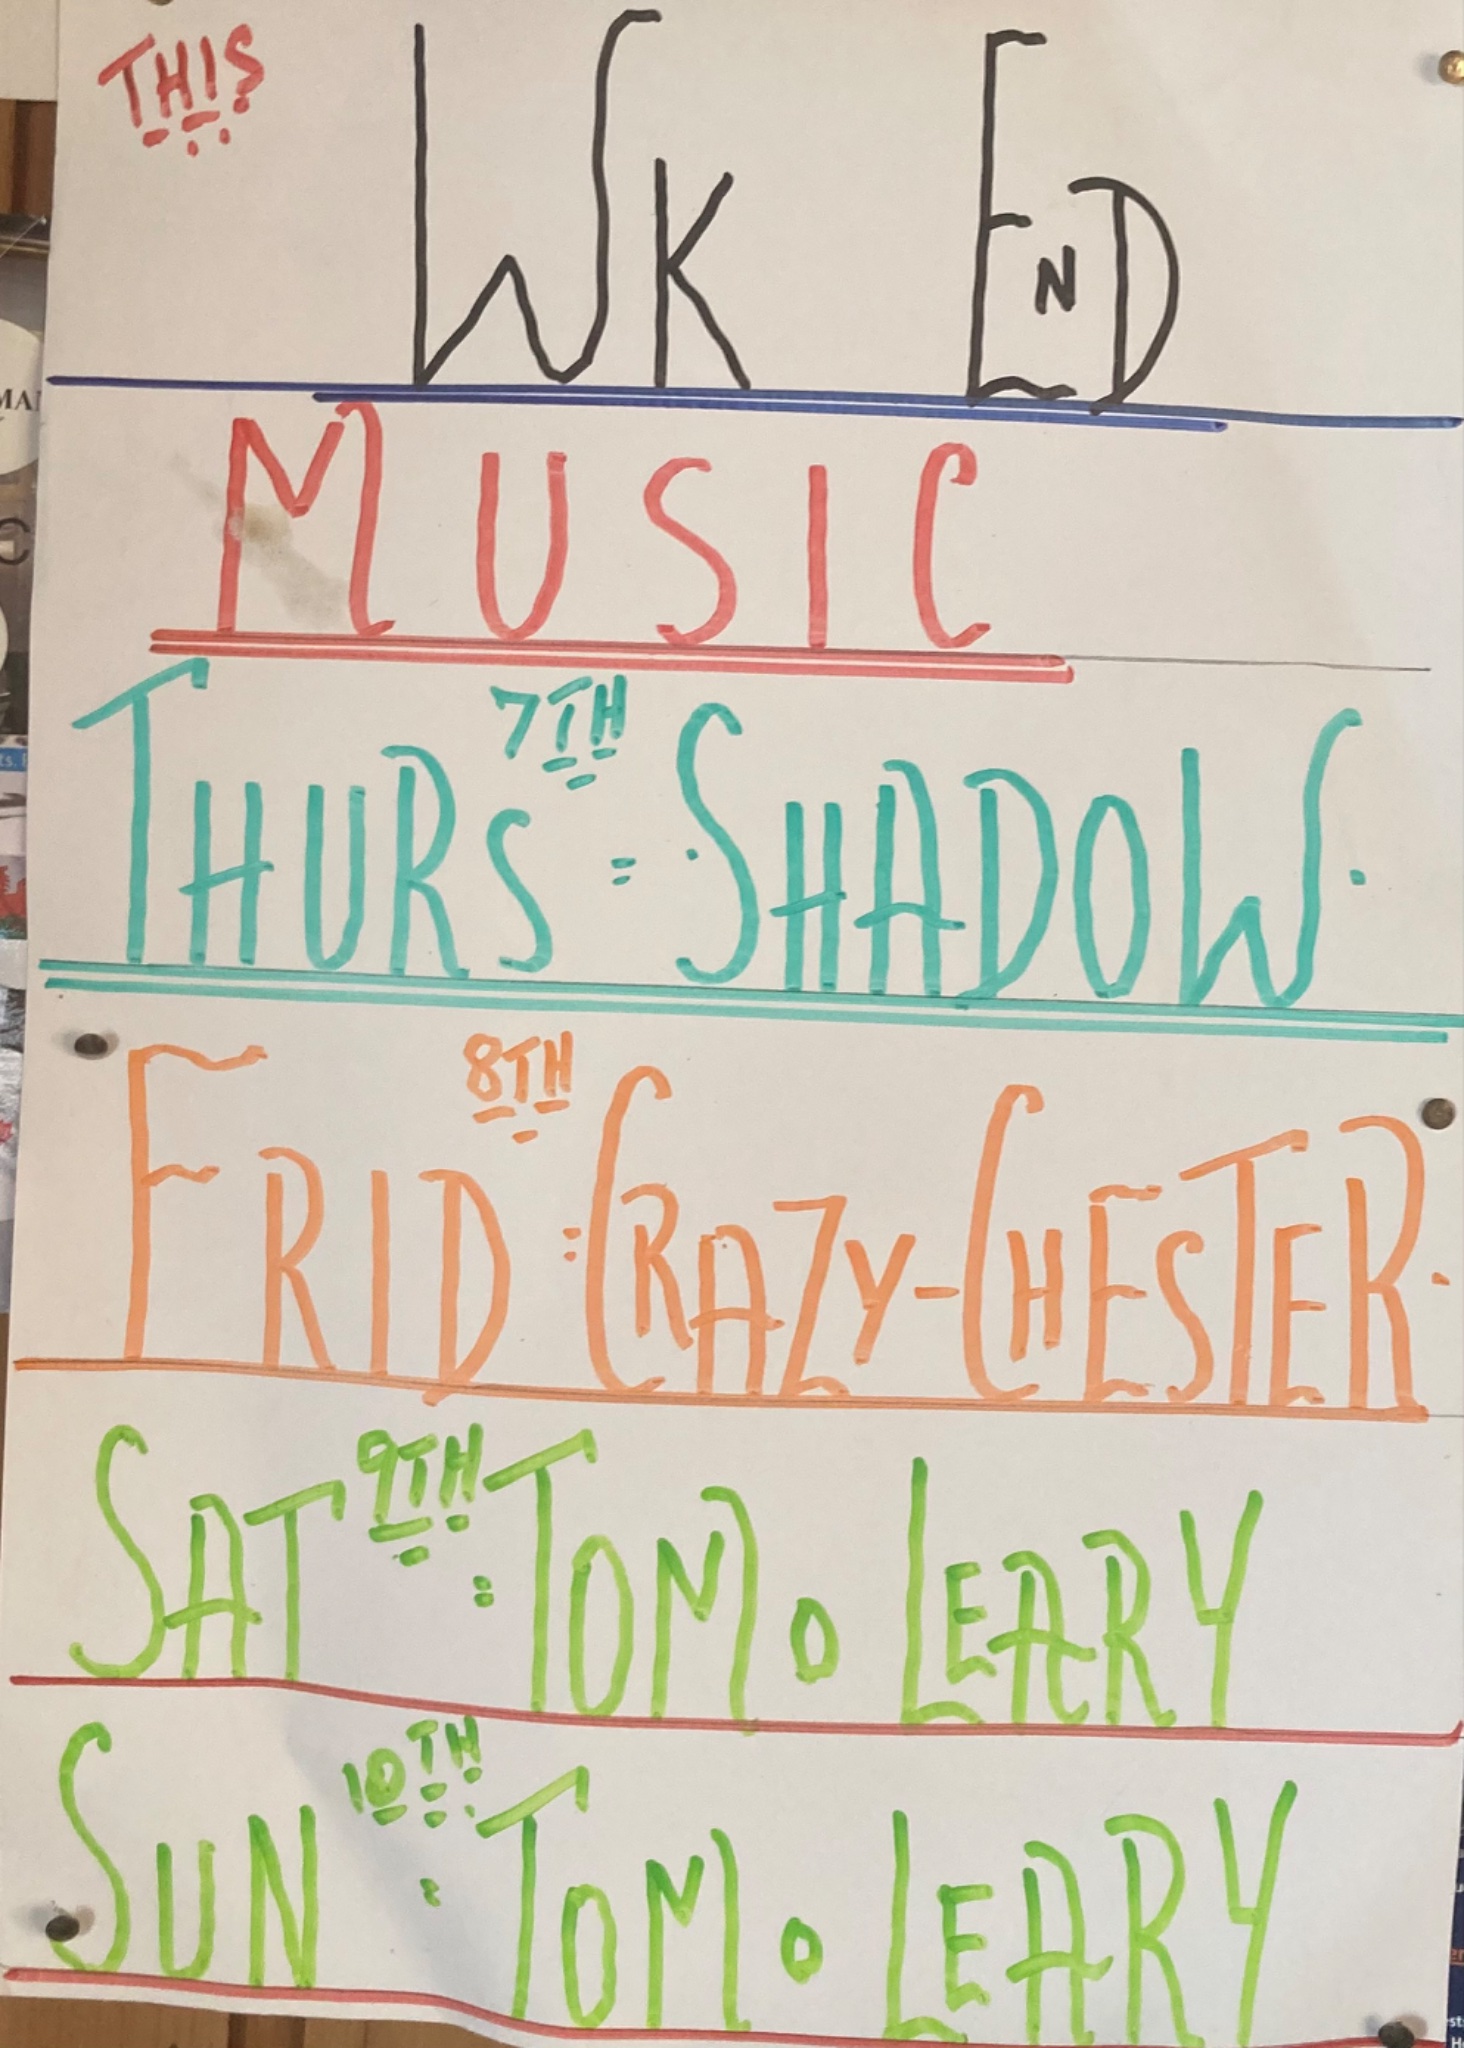 THIS
WK END
MUSIC
THURS 7TH = SHADOW.
FRID 8TH : CRAZY-CHESTER.
SAT 9TH : TOM O LEARY
SUN 10TH : TOM O LEARY